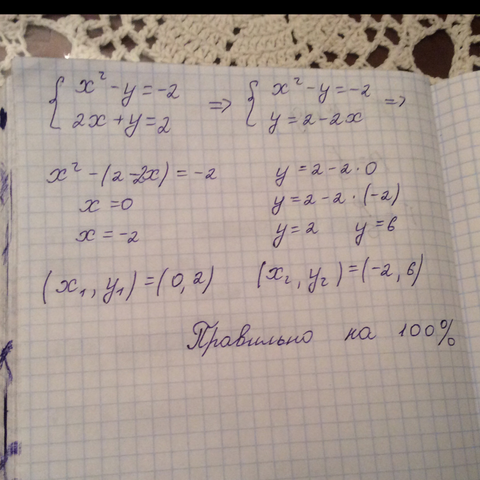 { x² - y = -2 => { x² - y = -2 =>
2x + y = 2 y = 2 - 2x
x² - (2 - 2x) = -2 y = 2 - 2 · 0
x = 0 y = 2 - 2 · (-2)
x = -2 y = 2 y = 6
(x₁, y₁) = (0, 2) (x₂, y₂) = (-2, 6)
Правильно на 100%